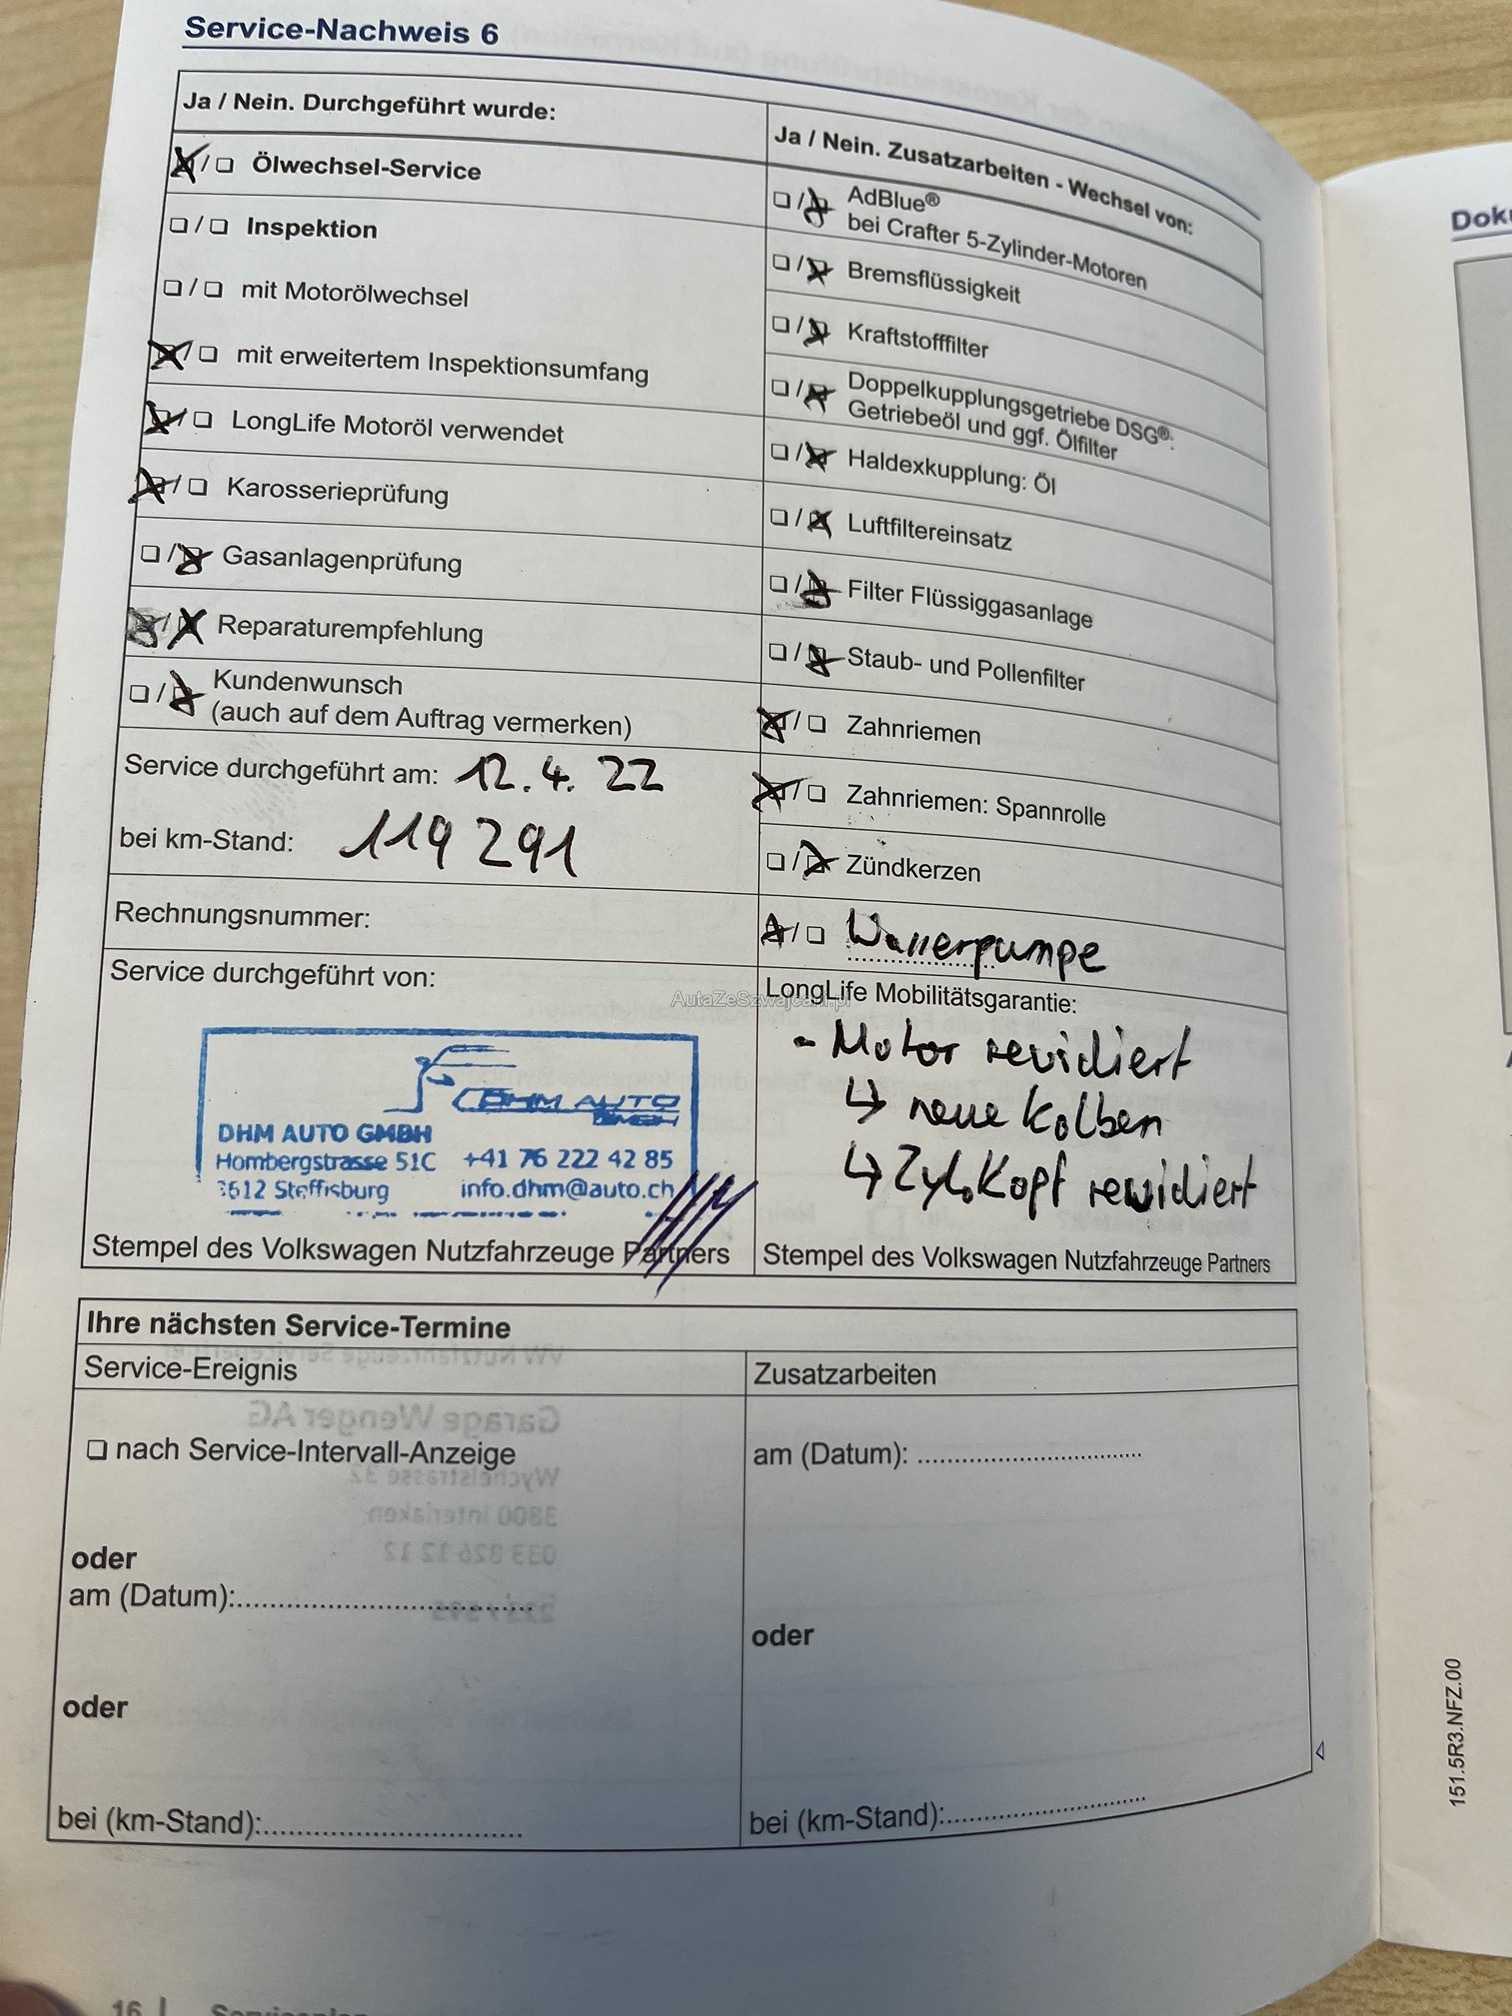 Service-Nachweis 6
Ja / Nein. Durchgeführt wurde:
❏ / ❏ Ölwechsel-Service
❏ / ❏ Inspektion
❏ / ❏ mit Motorölwechsel
❏ / ❏ mit erweitertem Inspektionsumfang
❏ / ❏ LongLife Motoröl verwendet
❏ / ❏ Karosserieprüfung
❏ / ❏ Gasanlagenprüfung
❏ / ❏ Reparaturempfehlung
❏ / ❏ Kundenwunsch
(auch auf dem Auftrag vermerken)
Service durchgeführt am: 12.4.22
bei km-Stand: 119291
Rechnungsnummer:
Service durchgeführt von:
DHM AUTO GMBH
DHM AUTO GMBH
Hombergstrasse 51C +41 76 222 42 85
3612 Steffisburg info.dhm@auto.ch
Stempel des Volkswagen Nutzfahrzeuge Partners
Ja / Nein. Zusatzarbeiten - Wechsel von:
❏ / ❏ AdBlue®
bei Crafter 5-Zylinder-Motoren
❏ / ❏ Bremsflüssigkeit
❏ / ❏ Kraftstofffilter
❏ / ❏ Doppelkupplungsgetriebe DSG®:
Getriebeöl und ggf. Ölfilter
❏ / ❏ Haldexkupplung: Öl
❏ / ❏ Luftfiltereinsatz
❏ / ❏ Filter Flüssiggasanlage
❏ / ❏ Staub- und Pollenfilter
❏ / ❏ Zahnriemen
❏ / ❏ Zahnriemen: Spannrolle
❏ / ❏ Zündkerzen
❏ / ❏ Wasserpumpe
AutaZeSzwajcarii.pl
LongLife Mobilitätsgarantie:
- Motor revidiert
↳ neue Kolben
↳ Zyl.Kopf revidiert
Stempel des Volkswagen Nutzfahrzeuge Partners
Ihre nächsten Service-Termine
Service-Ereignis
❏ nach Service-Intervall-Anzeige
oder
am (Datum):
oder
bei (km-Stand):
Zusatzarbeiten
am (Datum):
oder
bei (km-Stand):
16 | Serviceplan
151.5R3.NFZ.00